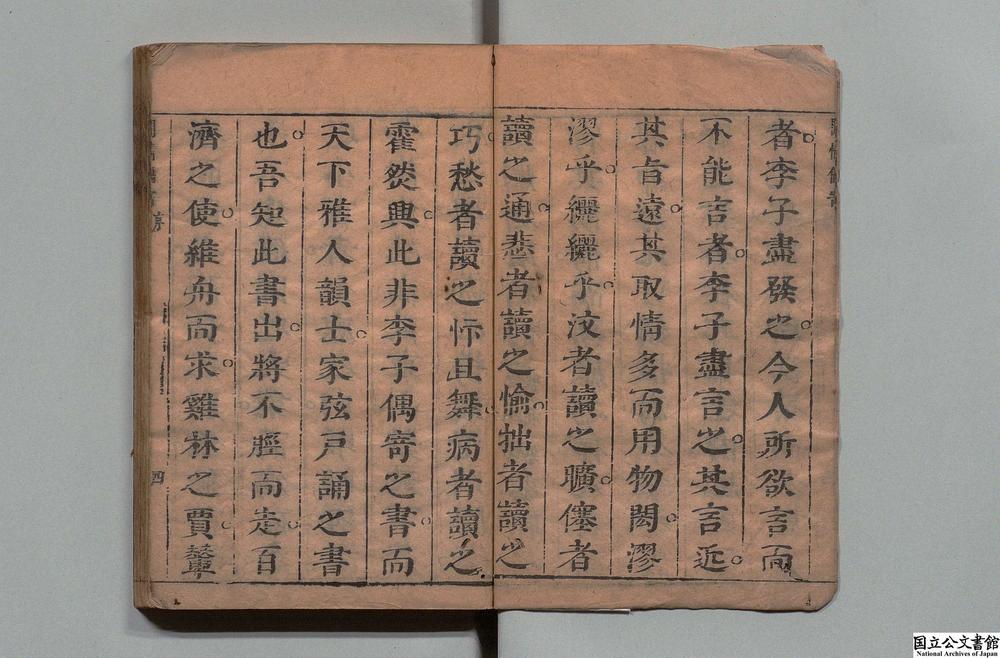 者李子盡發之今人所欲言而
不能言者李子盡言之其言近
其旨遠其取情多而用物閎漻
漻乎纚纚乎汶者讀之曠僿者
讀之通悲者讀之愉拙者讀之
巧愁者讀之忭且舞病者讀之
霍然興此非李子偶寄之書而
天下雅人韻士家弦戶誦之書
也吾知此書出將不脛而走百
濟之使維舟而求雞林之賈輦
四
国立公文書館
National Archives of Japan